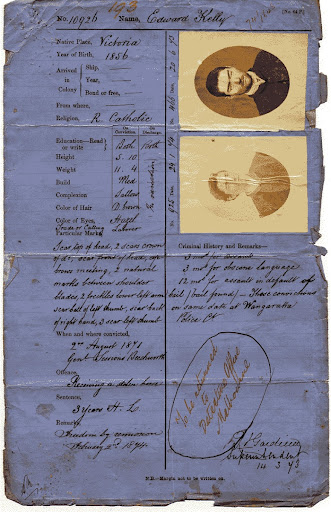 No. 10926 Name, Edward Kelly
[No. 34.]
Native Place, Victoria
Year of Birth, 1856
Arrived in Colony
Ship,
Year,
Bond or free,
From whom,
Religion, R. Catholic
On Conviction On Discharge
Education—Read or write Both both
Height 5. 10
Weight 11. 4
Build Med
Complexion Sallow
Color of Hair D. brown
No variation
Color of Eyes, Hazel
Trade or Calling Labourer
Particular Marks
Scar top of head, 2 scars crown
of do, scar front of head, eye
brows meeting, 2 natural
marks between shoulder
blades, 2 freckles lower left arm
scar ball of left thumb, scar back
of right hand, 3 scar left thumb
When and where convicted,
2nd August 1871
Genl Sessions Beechworth
Offence,
Receiving a stolen horse
Sentence,
3 years H. L
Remarks,
Freedom by remission
February 2nd 1874
Criminal History and Remarks—
3 mos for assault
3 mos for obscene language
12 mos for assault in default of
bail (bail found) — These convictions
on same date at Wangaratta
Police Ct
To be returned
to
Detective Office
Melbourne
Superintendent
14 3 73
N.B.—Margin not to be written on.